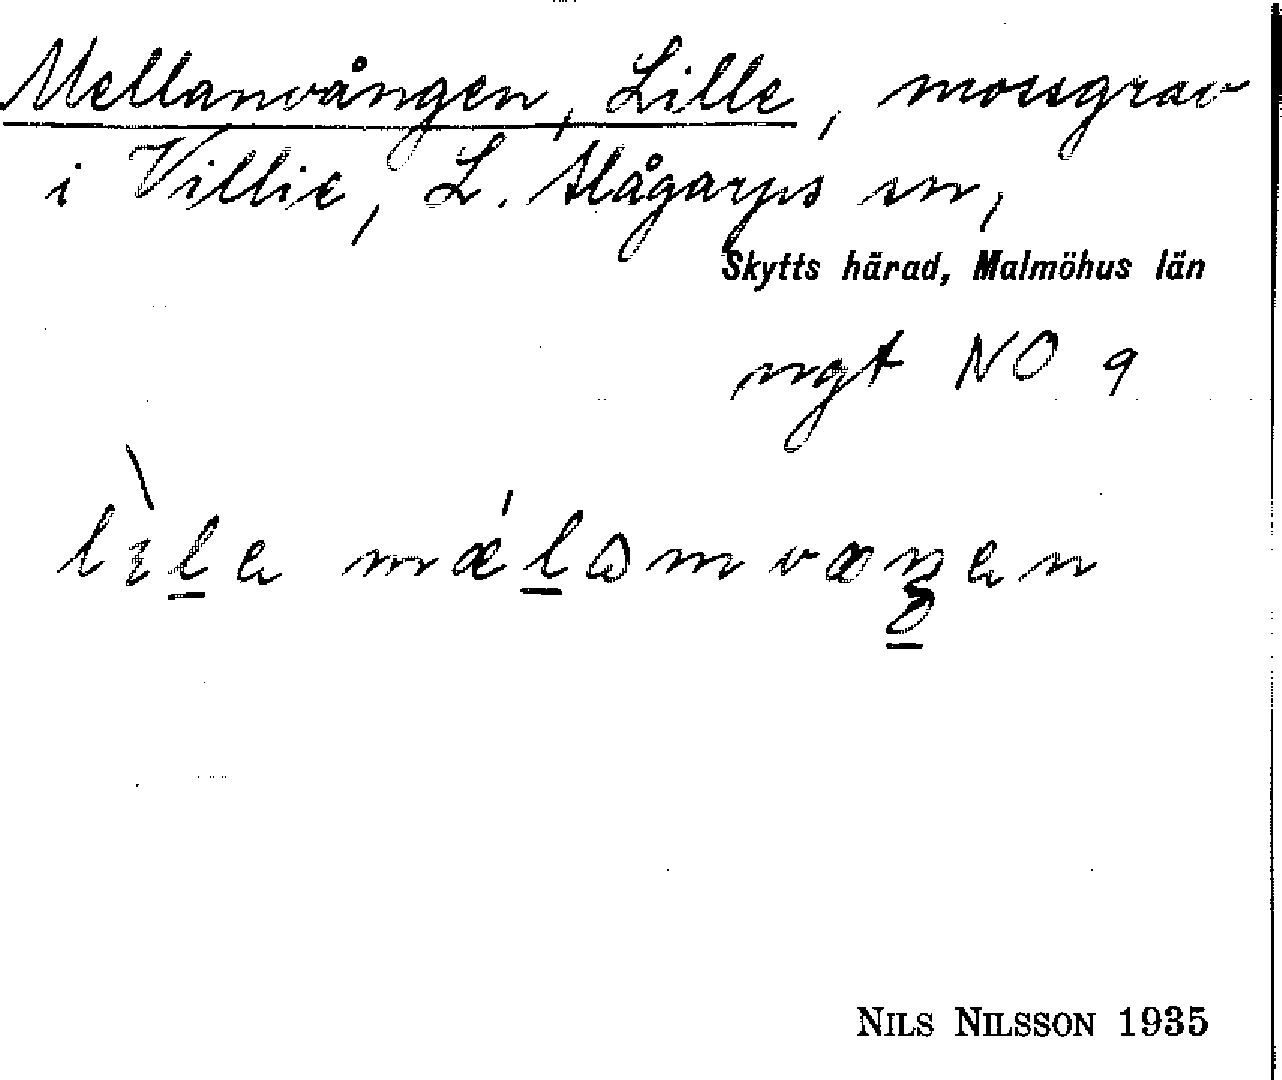 Mellanvången, Lille, mossgrav
i Villie, L. Slågarps sn,
Skytts härad, Malmöhus län
ngt NO 9
NILS NILSSON 1935